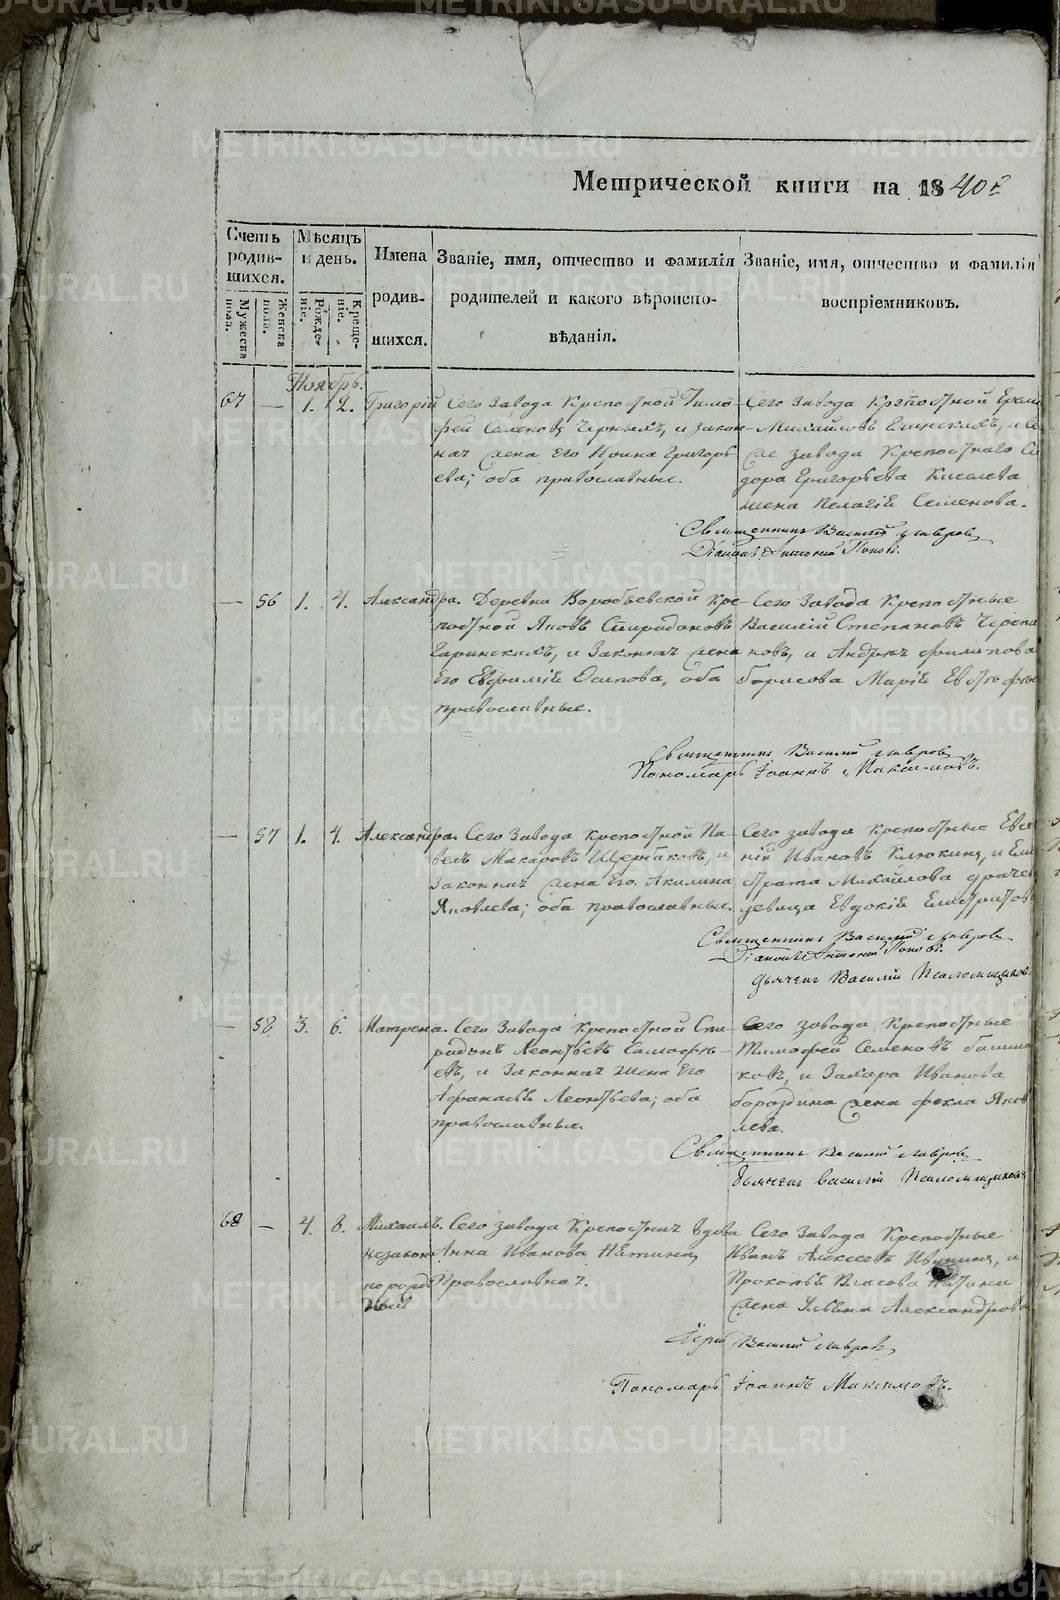 Метрической книги на 1840 г.
Счетъ родившихся.
Мужеска пола.
Женска пола.
Мѣсяцъ и день.
Рожденіе.
Крещеніе.
Имена родившихся.
Званіе, имя, отчество и фамилія родителей и какого вѣроисповѣданія.
Званіе, имя, отчество и фамилія воспріемниковъ.
Ноябрь.
67 — 1. 2. Григорій
Сего Завода Крепостной Тимо-
фей Семеновъ Черныхъ, и закон-
ная жена Его Ирина Григорь
ева; оба православные.
Сего Завода Крепостной
Михайловъ
завода Крепостнаго Си
дора Григорьева Киселева
жена Пелагія Семенова.
Священникъ Василий Лавров
Діаконъ Антоній Попов.
— 56 1. 4. Александра.
Деревни Воробьевской Кре-
постной Яковъ Спиридоновъ
Гаринскихъ, и Законная жена
Его Евфимія Осипова, оба
православные.
Сего Завода Крепостные
Василий Степановъ Черепа
новъ, и Андрея Филипова
Борисова Марія
Священникъ Василий Лавров
Пономарь Іоаннъ Максимовъ.
— 57 1. 4. Александра.
Сего Завода крепостной Па-
велъ Макаровъ Щербаковъ, и
Законная жена Его Акилина
Яковлева; оба православные.
Сего завода Крепостные Евге
ній Ивановъ Клюкинъ, и
Михайлова
девица Евдокія
Священникъ Василий Лавров
Діаконъ Антоній Попов.
Дьячекъ Василій Псаломщиков
— 58 3. 6. Матрена.
Сего Завода Крепостной Спи-
ридонъ Леонтьевъ
евъ, и Законная жена Его
Афанасья Леонтьева; оба
православные.
Сего завода Крепостные
Тимофей Семеновъ Башма
ковъ, и Захара Иванова
Бороздина жена Фекла Яков
лева.
Священникъ Василий Лавров
Дьячекъ Василій Псаломщиковъ
68 — 4. 8. Михаилъ.
незакон
норожде
ный
Сего завода Крепостная вдова
Анна Иванова Нетина,
Православная.
Сего Завода Крепостные
Иванъ Алексеевъ
Прокопья Власова Нетина
жена Ульяна Александрова
Іерей Василий Лавров,
Пономарь Іоаннъ Максимовъ.
METRIKI.GASO-URAL.RU